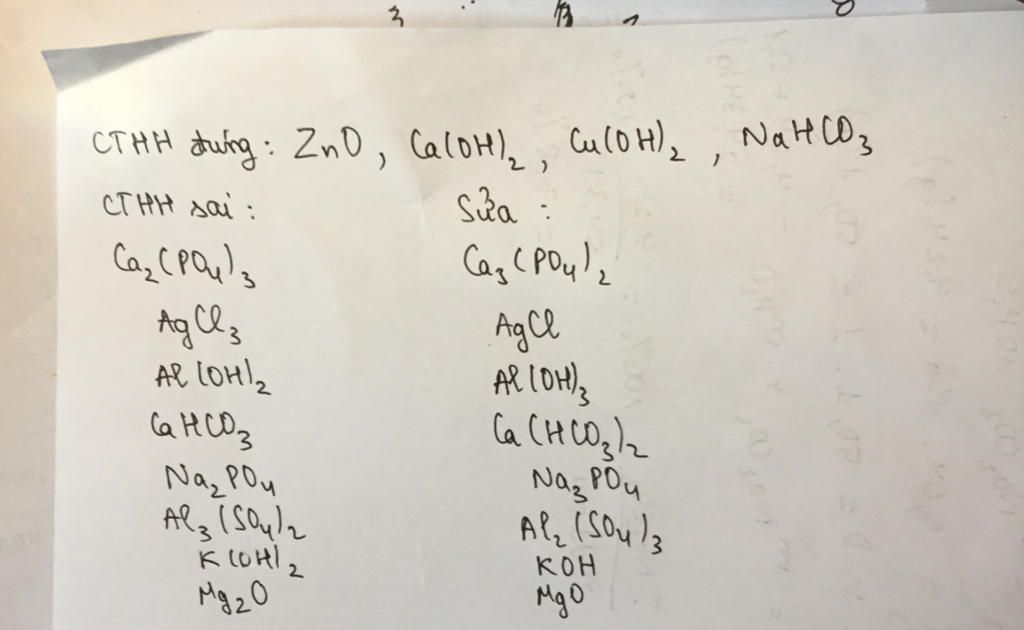 CTHH đúng: ZnO, Ca(OH)₂, Cu(OH)₂, NaHCO₃
CTHH sai: Sửa:
Ca₂(PO₄)₃ Ca₃(PO₄)₂
AgCl₃ AgCl
Al(OH)₂ Al(OH)₃
CaHCO₃ Ca(HCO₃)₂
Na₂PO₄ Na₃PO₄
Al₃(SO₄)₂ Al₂(SO₄)₃
K(OH)₂ KOH
Mg₂O MgO